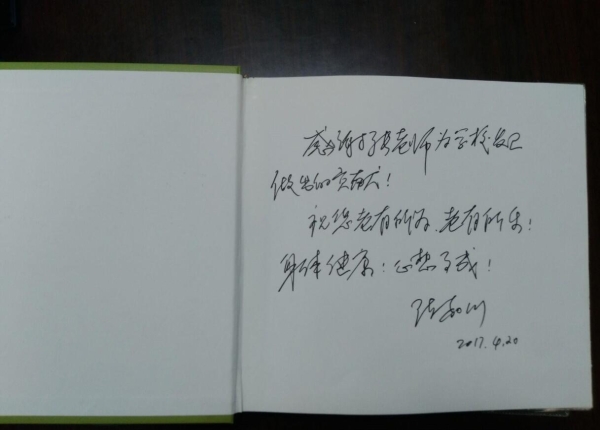 感谢老师为学校发展
做出的贡献!
祝您老有所为、老有所乐!
身体健康!心想事成!
2017.4.20